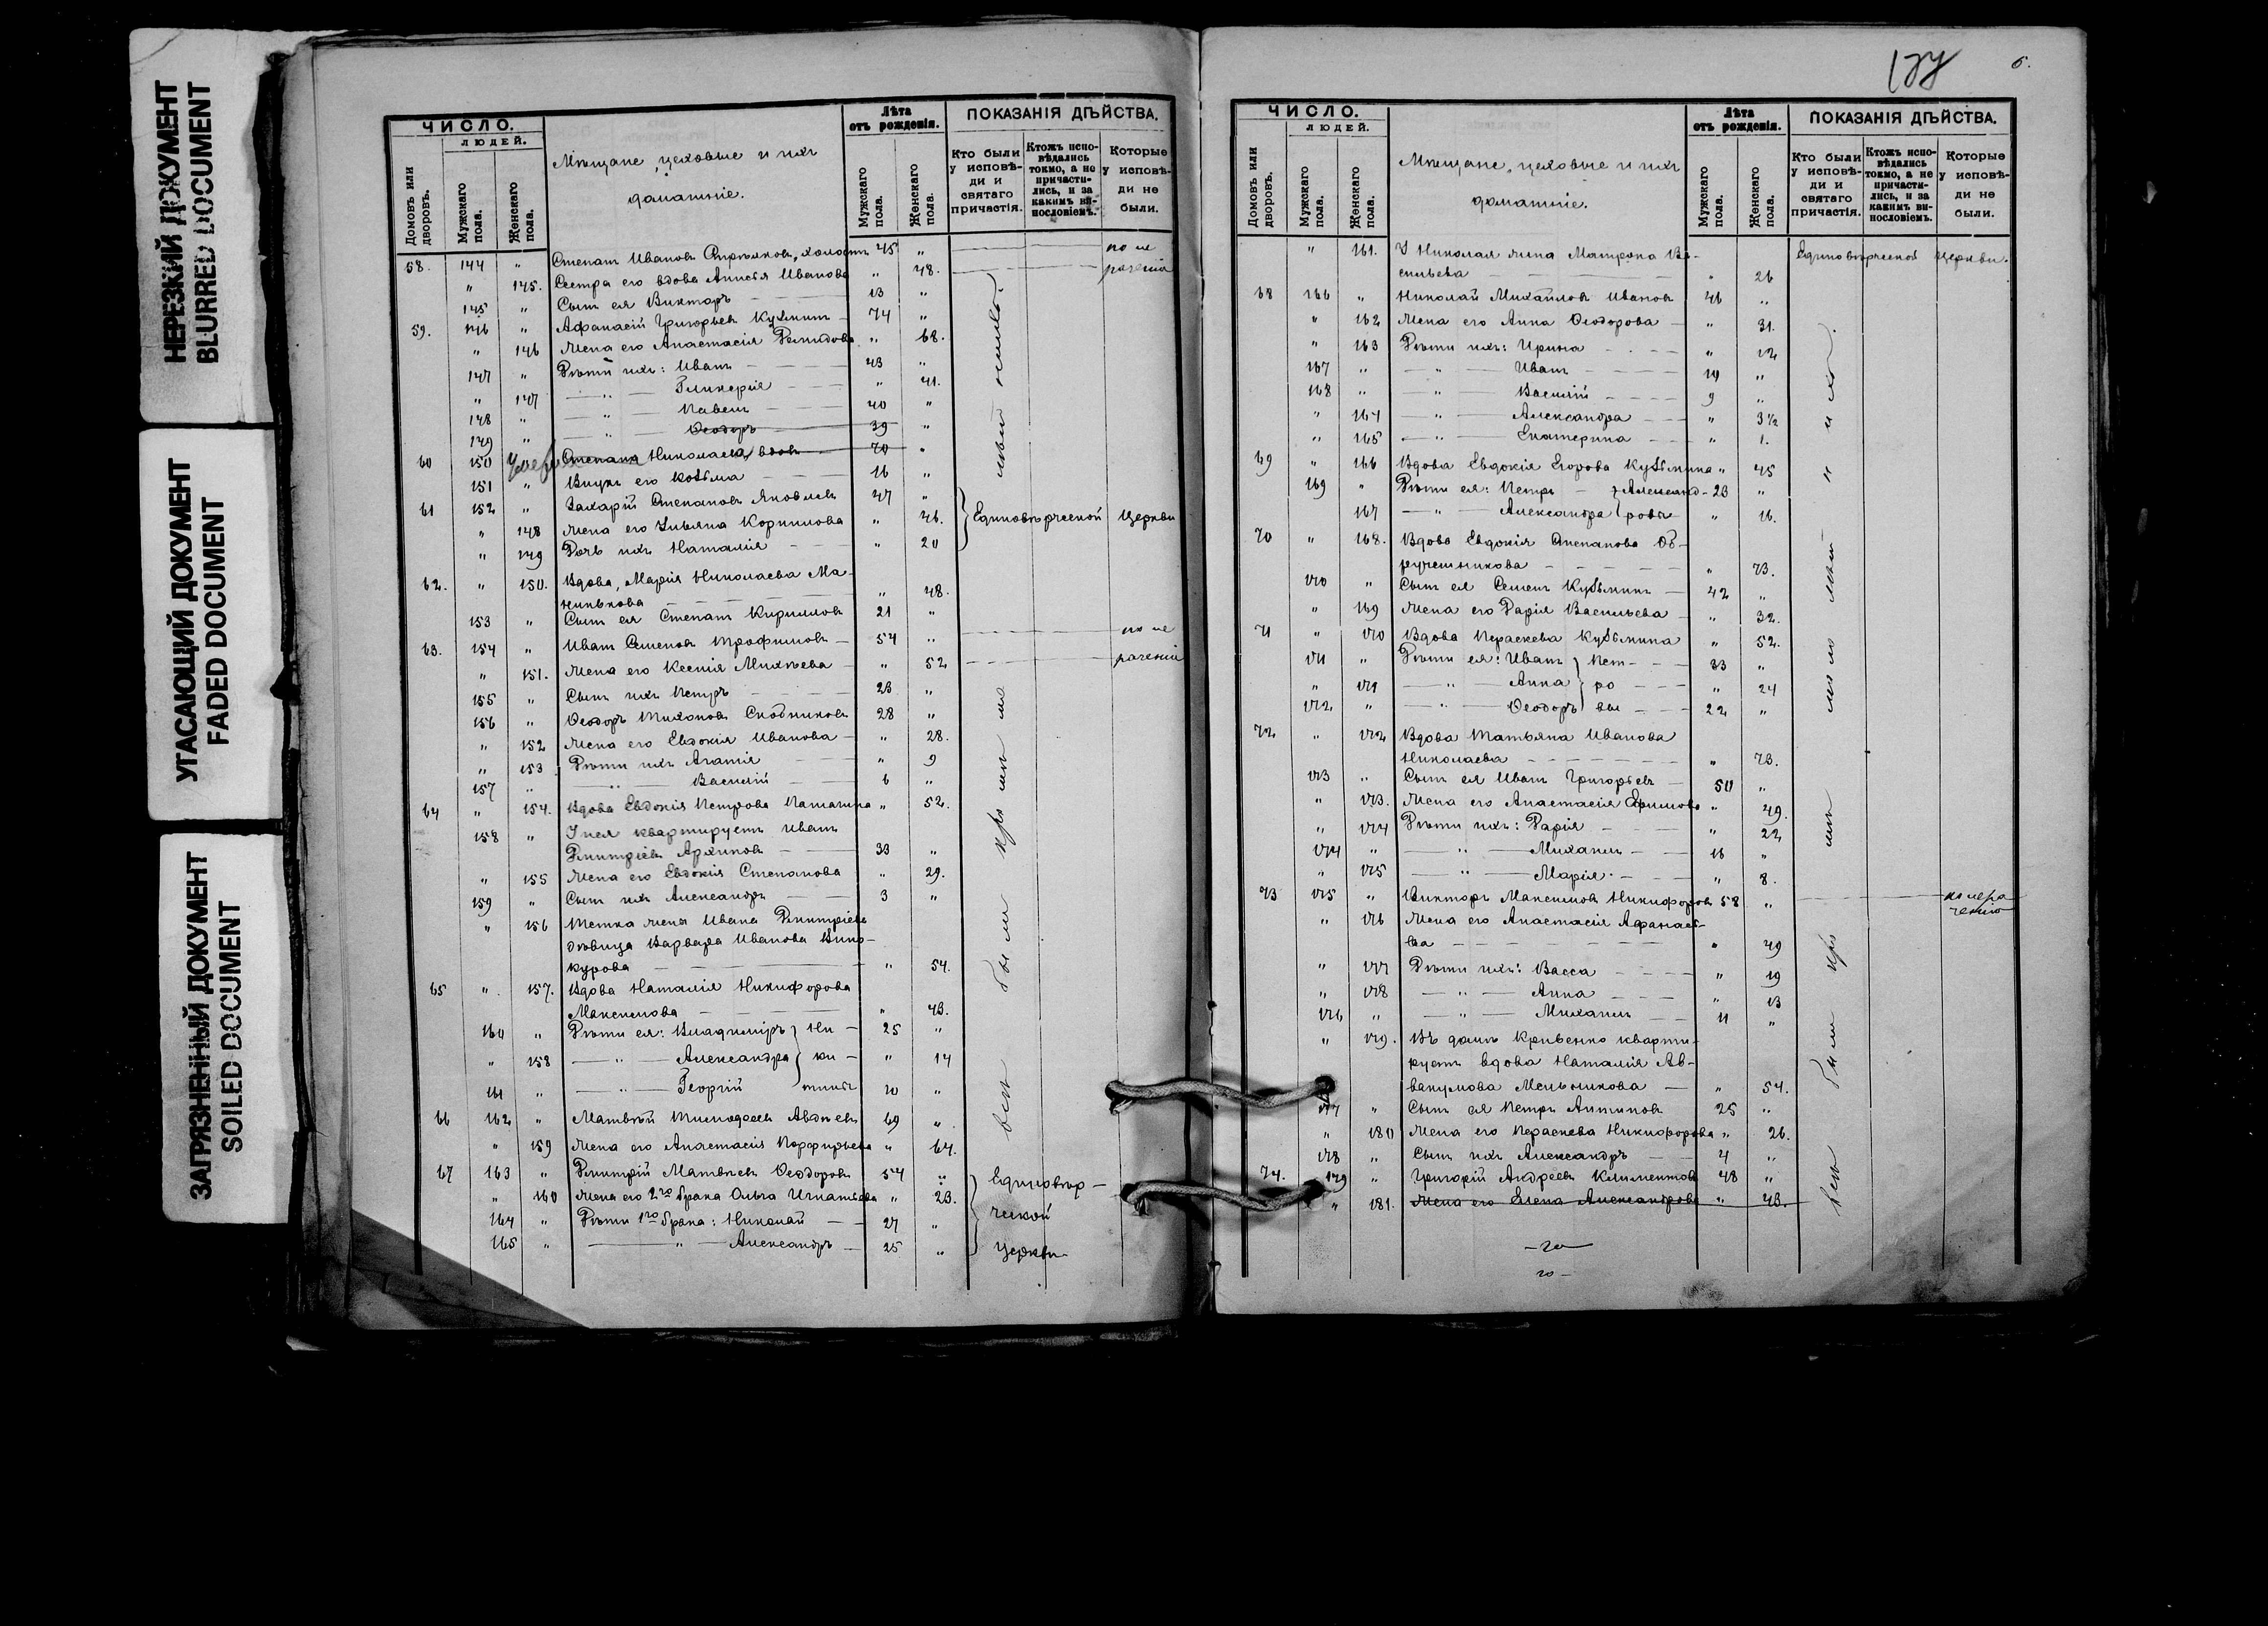 НЕРЕЗКИЙ ДОКУМЕНТ
BLURRED DOCUMENT
УГАСАЮЩИЙ ДОКУМЕНТ
FADED DOCUMENT
ЗАГРЯЗНЕННЫЙ ДОКУМЕНТ
SOILED DOCUMENT
ЧИСЛО.
ЛЮДЕЙ.
Домовъ или дворовъ.
Мужскаго пола.
Женскаго пола.
Мѣщане, цеховые и ихъ
домашніе.
Лѣта отъ рожденія.
Мужскаго пола.
Женскаго пола.
ПОКАЗАНІЯ ДѢЙСТВА.
Кто были у исповѣди и святаго причастія.
Ктожъ исповѣдались токмо, а не причастились, и за какимъ винословіемъ.
Которые у исповѣди не были.
58. 144 " Степанъ Ивановъ холостъ 45 "
" 145. Сестра его вдова Анисія Иванова " 48.
145 " Сынъ ея Викторъ 13 "
59. 146 " Афанасій Григорьевъ Кузминъ 74 "
" 146 Жена его Анастасія Демидова " 68.
147 " Дѣти ихъ: Иванъ 43 "
" 147 " Гликерія " 41.
148 " " Павелъ 40 "
149 " " Ѳеодоръ 39 "
60 150 " Степанъ Николаевъ вдовъ 70 "
151 " Внукъ его Козьма 16 "
61 152 " Захарій Степановъ Яковлевъ 47 "
" 148 Жена его Ульяна Корнилова " 46. Единовѣрческой Церкви
" 149 Дочь ихъ Наталія " 20
62. " 150. Вдова, Марія Николаева Ма-
нилкова " 48.
153 " Сынъ ея Степанъ Кириловъ 21 "
63. 154 " Иванъ Семеновъ Трофимовъ 54 " по не
" 151. Жена его Ксенія Михѣева " 52 раченію
155 " Сынъ ихъ Петръ 23 "
156 " Ѳеодоръ Тихоновъ Скобниковъ 28 "
" 152 Жена его Евдокія Иванова " 28.
" 153 Дѣти ихъ Агапія " 9
157 " " Василій 6 "
64 " 154. Вдова Евдокія Петрова " 52.
158 " У нея квартируетъ Иванъ
Дмитріевъ Архиповъ 33 "
" 155 Жена его Евдокія Степанова " 29.
159 " Сынъ ихъ Александръ 3 "
" 156 Тетка жены Ивана Дмитріева
дѣвица Варвара Иванова Вино-
курова " 54.
65 " 157. Вдова Наталія Никифорова
Максимова " 43.
160 " Дѣти ея: Владиміръ Ни- 25 "
" 158 " Александра ки- " 14
161 " " Георгій тины 10 "
66 162 " Матвѣй Тимофеевъ Авдѣевъ 69 "
" 159 Жена его Анастасія Порфирьева " 64.
67 163 " Дмитрій Матвѣевъ Ѳеодоровъ 54 " Единовѣр-
" 160 Жена его 2го брака Ольга Игнатьева " 23. ческой
164 " Дѣти 1го брака: Николай 27 "
165 " " Александръ 25 " Церкви
6.
ЧИСЛО.
ЛЮДЕЙ.
Домовъ или дворовъ.
Мужскаго пола.
Женскаго пола.
Мѣщане, цеховые и ихъ
домашніе.
Лѣта отъ рожденія.
Мужскаго пола.
Женскаго пола.
ПОКАЗАНІЯ ДѢЙСТВА.
Кто были у исповѣди и святаго причастія.
Ктожъ исповѣдались токмо, а не причастились, и за какимъ винословіемъ.
Которые у исповѣди не были.
" 161. У Николая жена Матрона Ва- Единовѣрческой Церкви.
сильева " 26
68 166 " Николай Михайловъ Ивановъ 46 "
" 162 Жена его Анна Ѳеодорова " 31.
" 163 Дѣти ихъ: Ирина " 12
167 " " Иванъ 10 "
168 " " Василій 9 "
" 164 " Александра " 3½
" 165 " Екатерина " 1.
69 " 166 Вдова Евдокія Егорова Кузьмина " 45
169 " Дѣти ея: Петръ Александ- 23 "
167 " Александра ровы " 16.
70 " 168. Вдова Евдокія Степанова Об-
ручешникова " 73.
170 " Сынъ ея Семенъ Кузьминъ 42 "
" 169 Жена его Дарія Васильева " 32.
71 " 170 Вдова Параскева Кузьмина " 52.
171 " Дѣти ея: Иванъ Пет- 33 "
" 171 " Анна ро " 24
172 " " Ѳеодоръ вы 22 "
72 " 172 Вдова Татьяна Иванова
Николаева " 73.
173 " Сынъ ея Иванъ Григорьевъ 50 "
" 173. Жена его Анастасія Ефимова " 49.
" 174 Дѣти ихъ: Дарія " 22
174 " " Михаилъ 16 "
" 175 " Марія " 8.
73 175 " Викторъ Максимовъ Никифоровъ 58 " по нера
" 176 Жена его Анастасія Афанась- ченію
ева " 49
" 177 Дѣти ихъ: Васса " 19
" 178 " Анна " 13
176 " " Михаилъ 11 "
" 179. Въ домѣ Кривенко кварти-
руетъ вдова Наталія Ав-
вакумова Мельникова " 54.
177 " Сынъ ея Петръ Антиповъ 25 "
" 180 Жена его Параскева Никифорова " 26.
178 " Сынъ ихъ Александръ 4 "
74. 179 " Григорій Андреевъ Климентовъ 48 "
" 181. Жена его Елена Александрова " 43.